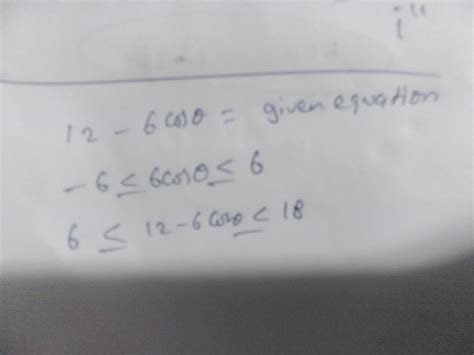 i"
12 - 6cosθ = given equation
-6 ≤ 6cosθ ≤ 6
6 ≤ 12-6cosθ ≤ 18